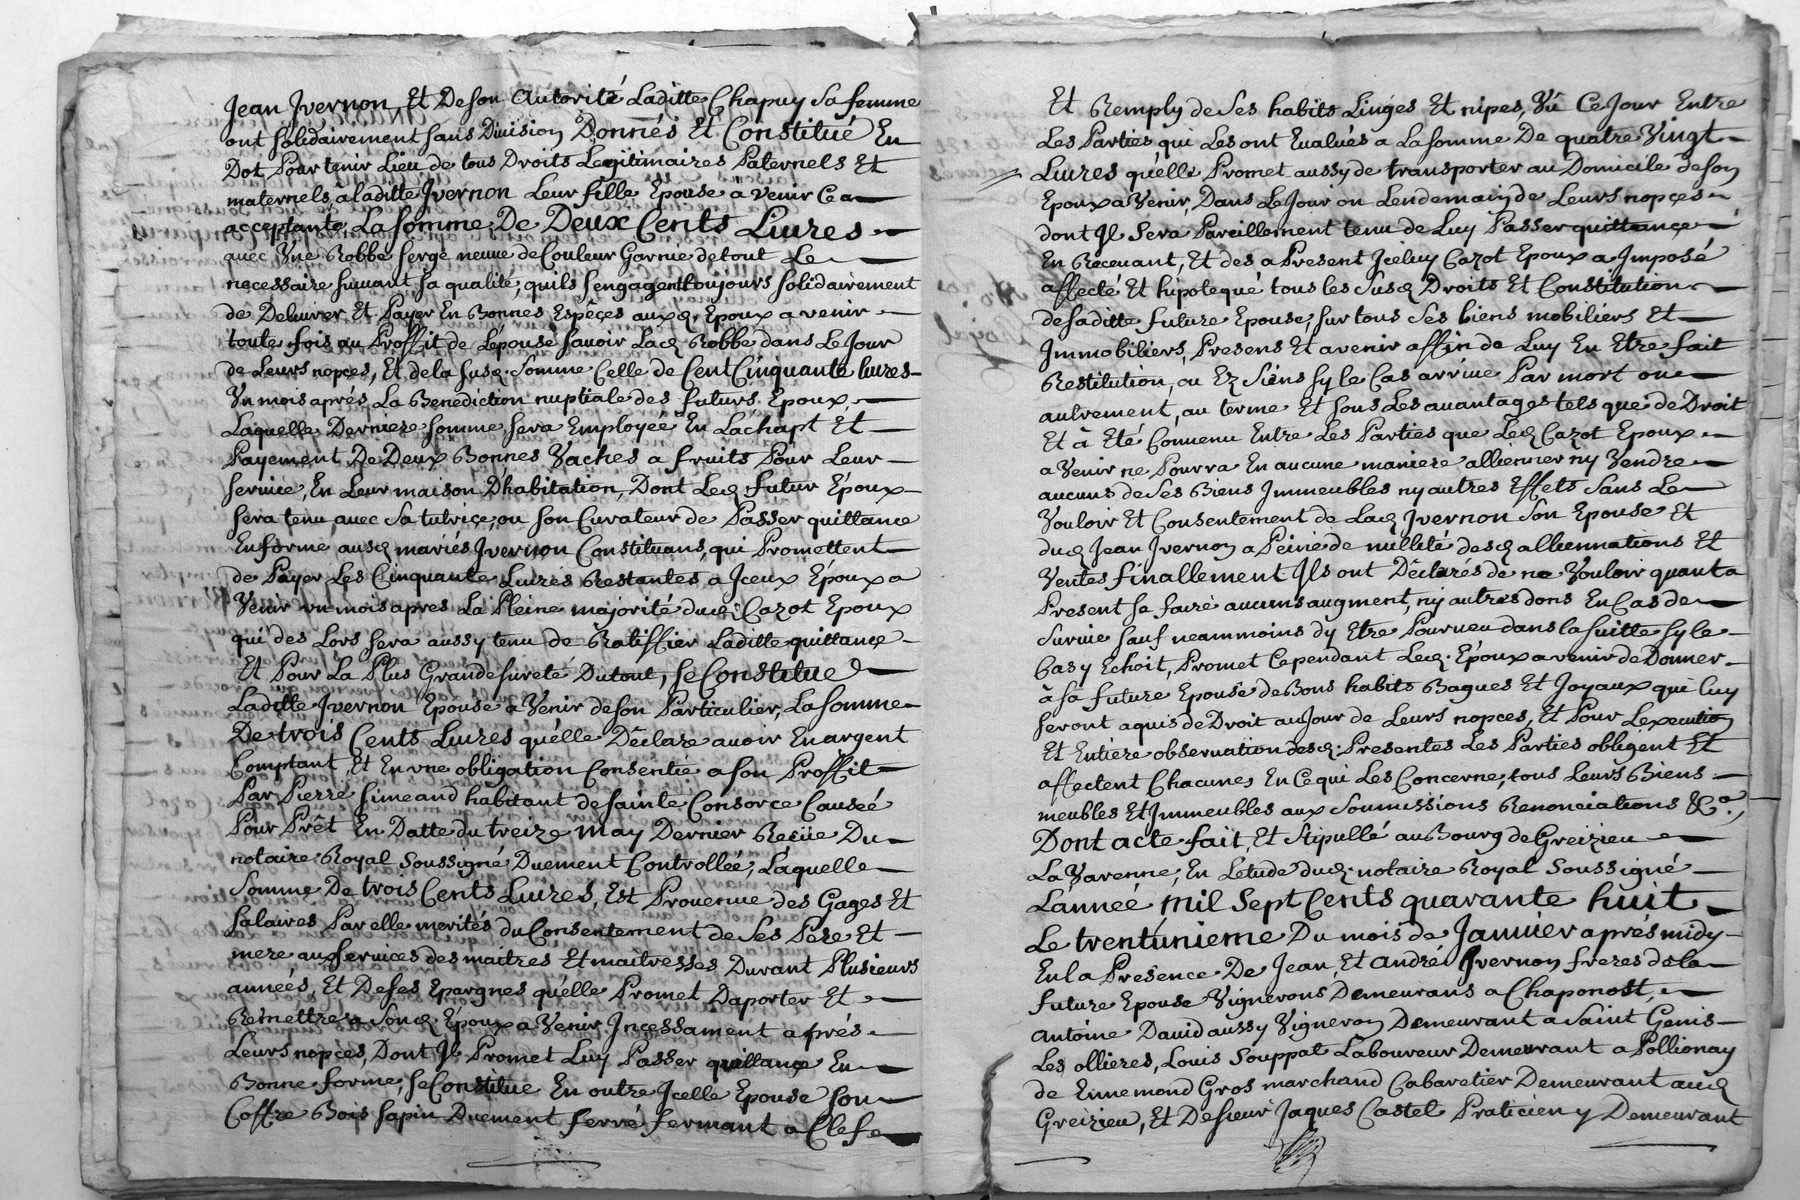 Jean Jvernon, Et De son Autorité Laditte Chapuy Sa femme
ont solidairement sans Division Donnés Et Constitué En
Dot Pour tenir Lieu de tous Droits Legitimaires Paternels Et
maternels, à laditte Jvernon Leur fille Epouse à venir Ce a
acceptante La somme De Deux Cents Livres
avec Vne Robbe serge neuve de Couleur Garnie de tout Le
necessaire suivant sa qualité, quils s'engagent toujours solidairement
de Delivrer Et Payer En Bonnes Espéçes auxd. Epoux a venir
toute fois au Proffit de L'épouse savoir Lad. Robbe dans Le Jour
de Leurs nopçes, Et de la susd. Somme Celle de Cent Cinquante livres
Vn mois aprés La Benediction nuptiale des futurs Epoux
Laquelle Derniere somme sera Employée En L'achapt Et
Payement De Deux Bonnes Vaches a fruits Pour Leur
service, En Leur maison D'habitation, Dont Led. futur Epoux
sera tenu avec Sa tutriçe, ou son Curateur de Passer quittance
En forme ausd. mariés Jvernon Constituans, qui Promettent
de Payer Les Cinquante Livres Restantes a Jceux Epoux a
Venir vn mois apres La Pleine majorité dud. Cazot Epoux
qui des Lors sera aussy tenu de Ratiffier Laditte quittançe
Et Pour La Plus Grande sureté Dutout, se Constitue
Laditte Jvernon Epouse a Venir de son Particulier, La somme
De trois Cents Livres qu'elle Déclare avoir En argent
Comptant, Et En vne obligation Consentie a son Proffit
Par Pierre Simeand habitant de sainte Consorce Causée
Pour Prêt En Datte du treize may Dernier Reçüe Du
notaire Royal Soussigné Duement Controllée, Laquelle
Somme De trois Cents Livres, Est Provenue des Gages Et
Salaires Par elle merités du Consentement de Ses Pere Et
mere aux services des maitres Et maitresses Durant Plusieurs
années, Et De ses Epargnes qu'elle Promet D'aporter Et
Remettre a Sond. Epoux a Venir Jncessament aprés
Leurs nopçes, Dont Jl Promet Luy Passer quittançe En
Bonne forme, se Constitue En outre Jcelle Epouse son
Coffre Bois sapin Duement ferré fermant a Clefs
Et Remply de Ses habits Linges Et nipes, Vû Ce Jour Entre
Les Parties qui Les ont Evalués a La somme De quatre Vingt
Livres qu'elle Promet aussy de transporter au Domicile de son
Epoux à Venir, Dans Le Jour ou Lendemain de Leurs nopçes
dont Jl Sera Pareillement tenu de Luy Passer quittançe
En Recevant, Et des a Present Jceluy Cazot Epoux a Jmposé
affecté Et hipotequé tous les Susd. Droits Et Constitution
de saditte future Epouse, sur tous Ses biens mobiliers Et
Jmmobiliers, Presens Et avenir affin de Luy En Etre fait
Restitution, ou Ez Siens sy le Cas arrive Par mort ou
autrement, au terme Et sous Les avantages tels que de Droit
Et à Eté Convenu Entre Les Parties que Led. Cazot Epoux
a Venir ne Pourra En aucune maniere allienner ny Vendre
aucuns de Ses Biens Jmmeubles ny autres Effets Sans Le
Vouloir Et Consentement de Lad. Jvernon Son Epouse Et
dud. Jean Jvernon a Peine de nullité desd. alliennations Et
Ventes finallement Jls ont Déclarés de ne Vouloir quant a
Present se faire aucuns augment, ny autres dons En Cas de
Survie sauf neammoins d'y Etre Pourveu dans la suitte sy le
Cas y Echoit, Promet Cependant Led. Epoux a venir de Donner
à sa future Epouse de Bons habits Bagues Et Joyaux qui luy
seront aquis de Droit au Jour de Leurs nopces, Et Pour L'execution
Et Entiere observation desd. Presentes Les Parties obligent Et
affectent Chacunes En Ce qui Les Concerne, tous Leurs Biens
meubles Et Jmmeubles aux Soumissions Renonciations &Ca.,
Dont acte fait, Et Stipullé au Bourg de Greizieu
La Varenne, En L'etude dud. notaire Royal Soussigné
L'année mil Sept Cents quarante huit
Le trentunieme Du mois de Janvier aprés midy
En la Presence De Jean, Et André Jvernon freres de la
future Epouse Vignerons Demeurans a Chaponost,
Antoine David aussy Vigneron Demeurant a Saint Genis
Les ollieres, Louis Souppat Laboureur Demeurant a Pollionay
de Ennemond Gros marchand Cabaretier Demeurant aud.
Greizieu, Et De sieur Jaques Castel Praticien y Demeurant